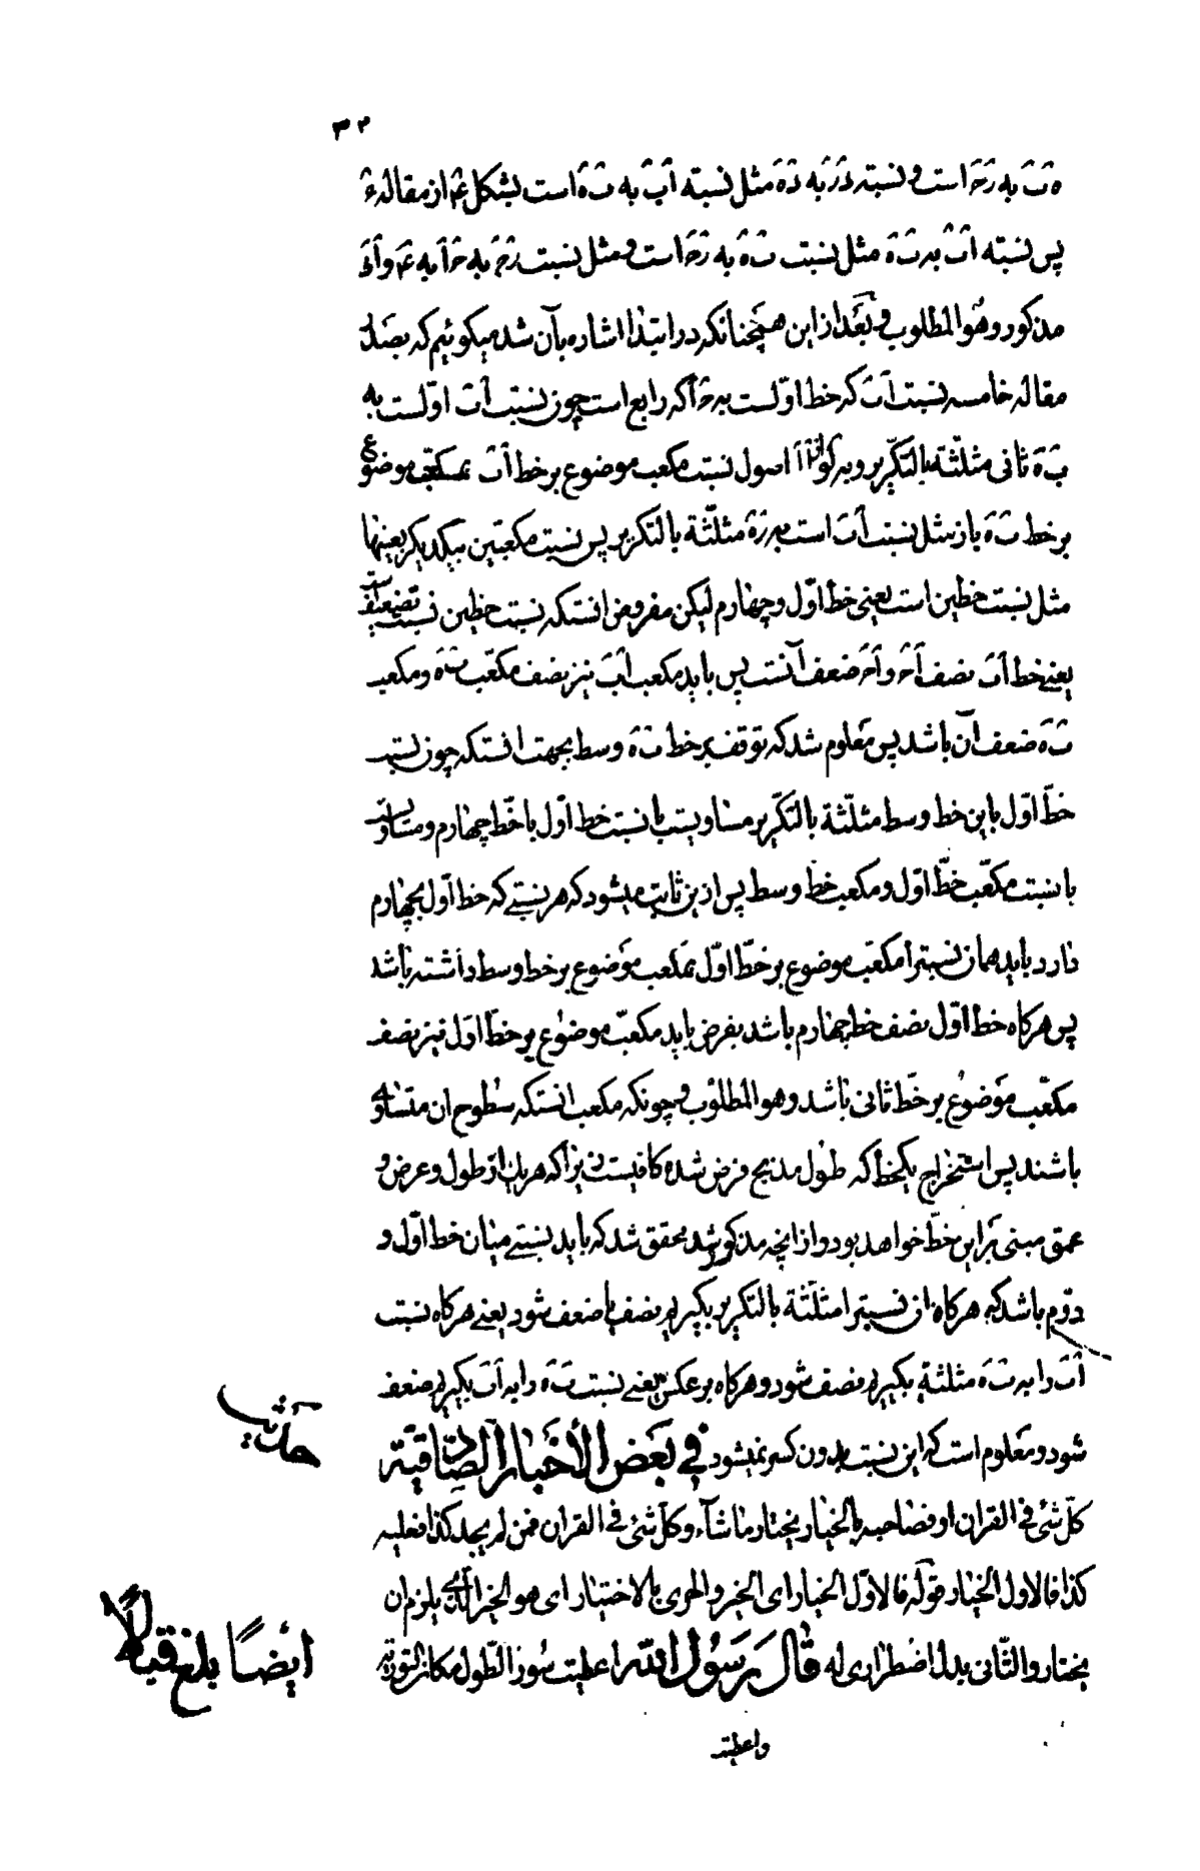 ٣٢
ه‍ ب به ز ح است و نسبته د ز به د ه مثل نسبته اب به ب ه است بشکل از مقاله
پس نسبته اب به ب ه مثل نسبت ب ه به ز ح است و مثل نسبت ز ح به ح ا
مذکور و هو المطلوب و بعد از این همچنانکه در ابتدا اشاره بآن شد میکوئیم که بصدر
مقاله خامسه نسبت اب که خط اولست به ح ا که رابع است چون نسبت اب اولست به
ب ه ثانی مثلثة بالتکریر و به اصول نسبت مکعب موضوع بر خط اب بمکعب موضوع
بر خط ب ه باز مثل نسبت اب است به ب ه مثلثة بالتکریر پس نسبت مکعبین بیکدیکر بعینها
مثل نسبت خطین است یعنی خط اول و چهارم لیکن مفروض انستکه نسبت خطین نسبت تضعیف است
یعنی خط اب نصف ا ح و ا ح ضعف آنست پس باید مکعب اب نیز نصف مکعب ب ه و مکعب
ب ه ضعف ان باشد پس معلوم شد که توقف بر خط ب ه وسط بجهت انستکه چون نسبت
خط اول باین خط وسط مثلثة بالتکریر مساویست با نسبت خط اول با خط چهارم و مساویست
با نسبت مکعب خط اول و مکعب خط وسط پس ازین ثابت میشود که هر نسبتے که خط اول بچهارم
دارد باید همان نسبترا مکعب موضوع بر خط اول بمکعب موضوع بر خط وسط داشته باشد
پس هرکاه خط اول نصف خط چهارم باشد بفرض باید مکعب موضوع بر خط اول نیز نصف
مکعب موضوع بر خط ثانی باشد و هو المطلوب و چونکه مکعب انستکه سطوح ان متساوی
باشند پس استخراج یکخط که طول مذبح فرض شده کافیست زیراکه هر یک از طول و عرض و
عمق مبنی بر این خط خواهد بود و از انچه مذکور شد محقق شد که باید نسبتے میان خط اول و
دوم باشد که هرکاه ان نسبترا مثلثة بالتکریر بکیریم نصف یا ضعف شود یعنے هرکاه نسبت
اب را به ب ه مثلثة بکیریم نصف شود و هرکاه بر عکس یعنے نسبت ب ه را به اب بکیریم ضعف
شود و معلوم است که این نسبت بدون کسر نمیشود فی بعض الأخبار الصادقیة
حدیث
کل شئ فی القران او فصاحبه بالخیار یختار ما شآء و کل شئ فی القران فمن لم یجد کذا فعلیه
کذا فالاول الخیار قوله فالاول الخیار ای الخیر و الحری بالاختیار ای هو الخیر الذی یلزم ان
یختار و الثانی بدل اضطراری له قال رسول الله اعطیت سور الطول مکان التوریة
ایضا بلغ قبالا
واعطیت